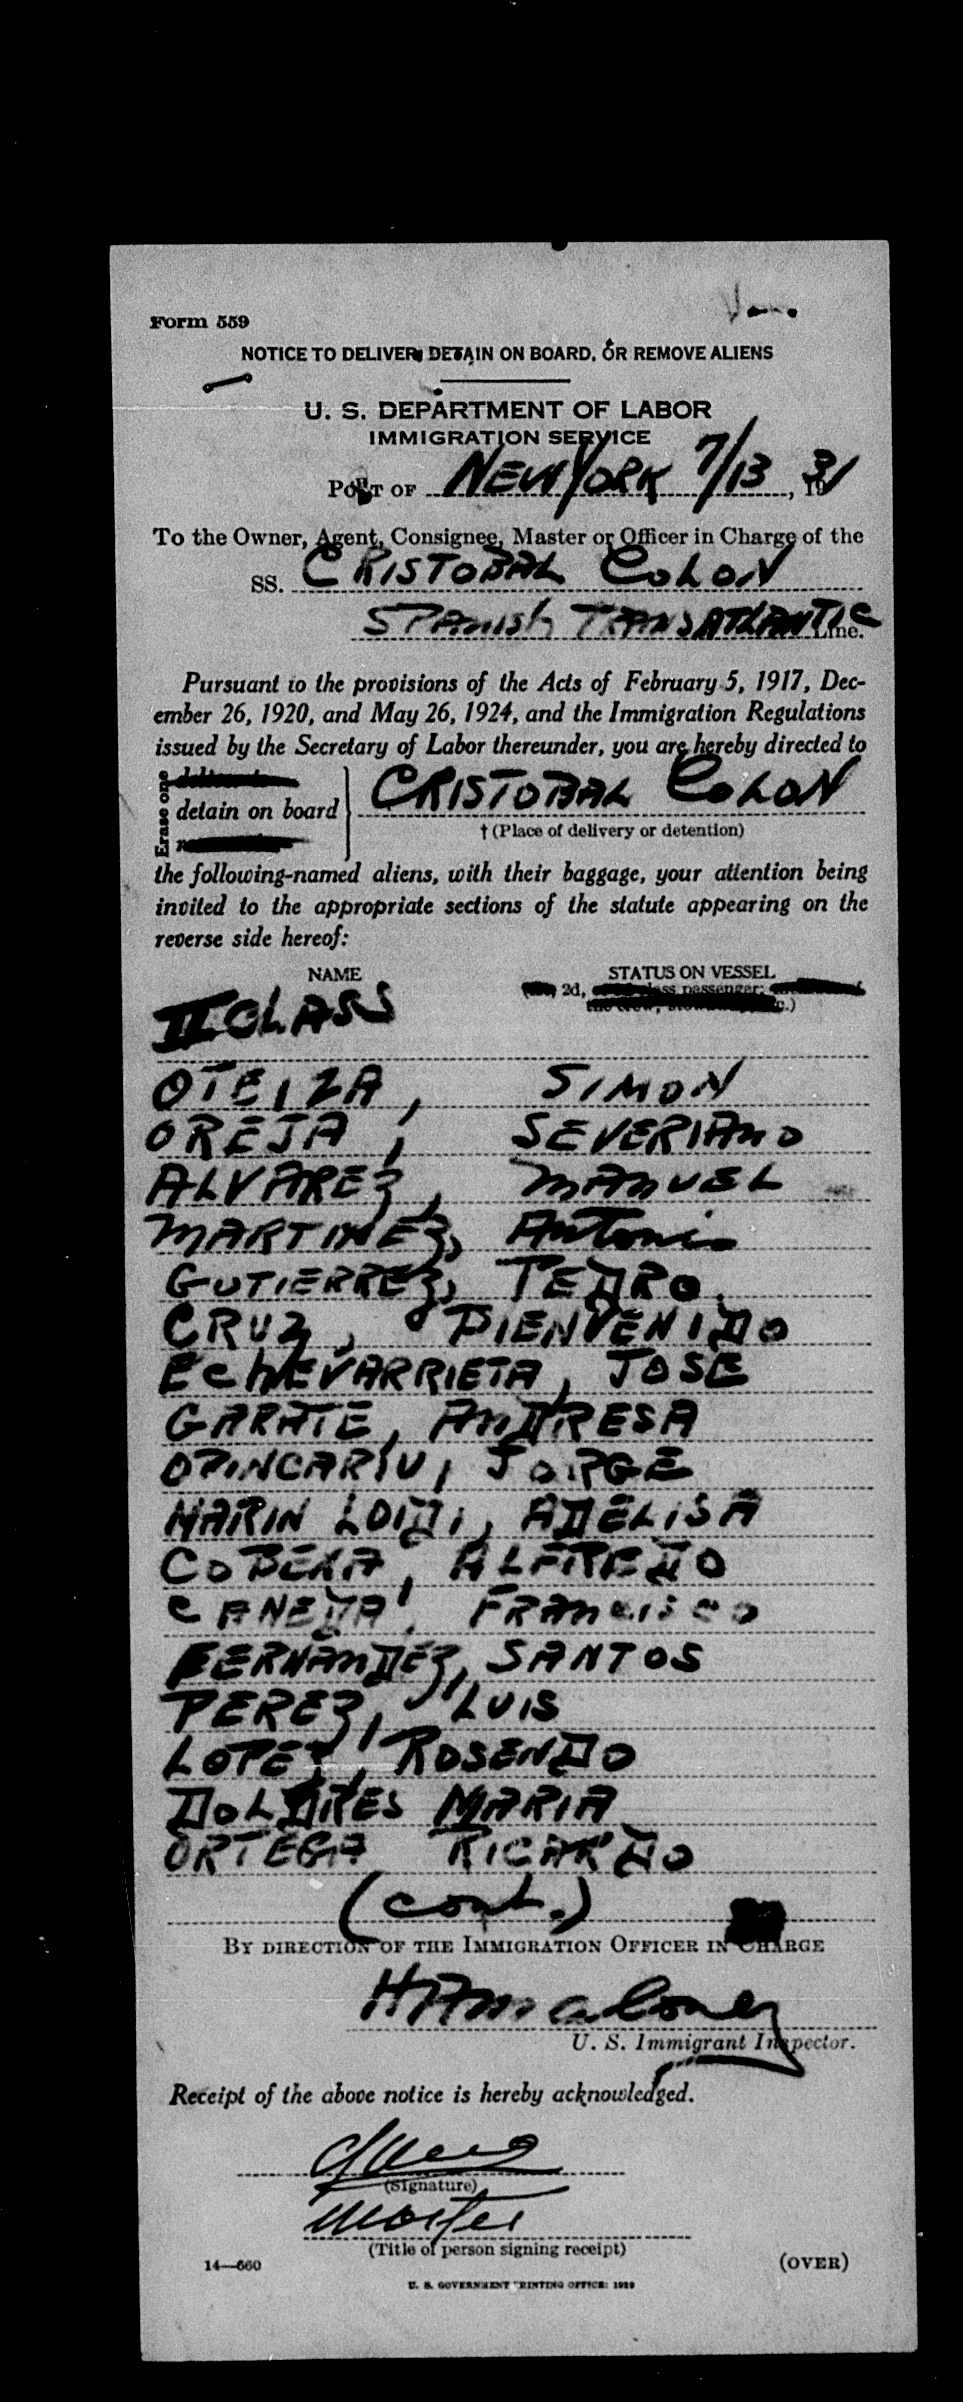 Form 559
NOTICE TO DELIVER, DETAIN ON BOARD, OR REMOVE ALIENS
U. S. DEPARTMENT OF LABOR
IMMIGRATION SERVICE
PORT OF NEW YORK 7/13, 1931
To the Owner, Agent, Consignee, Master or Officer in Charge of the
SS. CRISTOBAL COLON
SPANISH TRANSATLANTIC Line.
Pursuant to the provisions of the Acts of February 5, 1917, Dec-
ember 26, 1920, and May 26, 1924, and the Immigration Regulations
issued by the Secretary of Labor thereunder, you are hereby directed to
Erase one
detain on board CRISTOBAL COLON
† (Place of delivery or detention)
the following-named aliens, with their baggage, your attention being
invited to the appropriate sections of the statute appearing on the
reverse side hereof:
NAME STATUS ON VESSEL
2d, class passenger;
II CLASS
OTEIZA, SIMON
OREJA, SEVERIANO
ALVAREZ, MANUEL
MARTINEZ, Antonio
GUTIERREZ, PEDRO
CRUZ, BIENVENIDO
ECHEVARRIETA, JOSE
GARATE, ANDRESA
JORGE
MARIN LOIDI, ADELISA
ALFREDO
CANEDA, FRANCISCO
FERNANDEZ, SANTOS
PEREZ, LUIS
LOPEZ, ROSENDO
DOLORES MARIA
ORTEGA RICARDO
(cont.)
BY DIRECTION OF THE IMMIGRATION OFFICER IN CHARGE
Maloney
U. S. Immigrant Inspector.
Receipt of the above notice is hereby acknowledged.
(Signature)
Master
(Title of person signing receipt)
14—560
(OVER)
U. S. GOVERNMENT PRINTING OFFICE: 1929